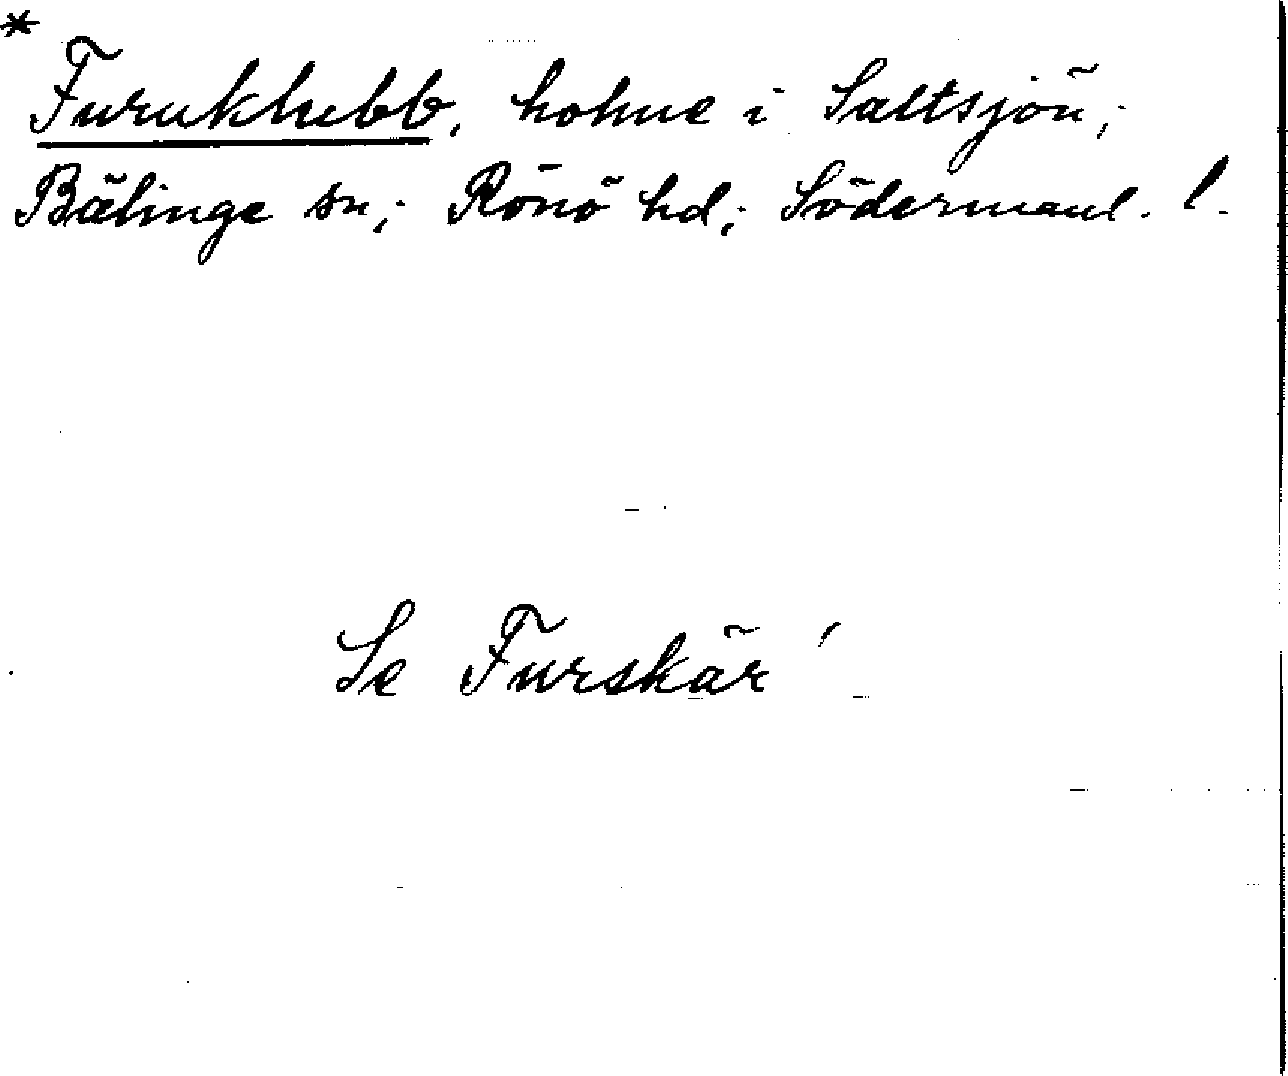 * Furuklubb, holme i Saltsjön;
Bälinge sn; Rönö hd; Södermanl. l.
Se Furskär